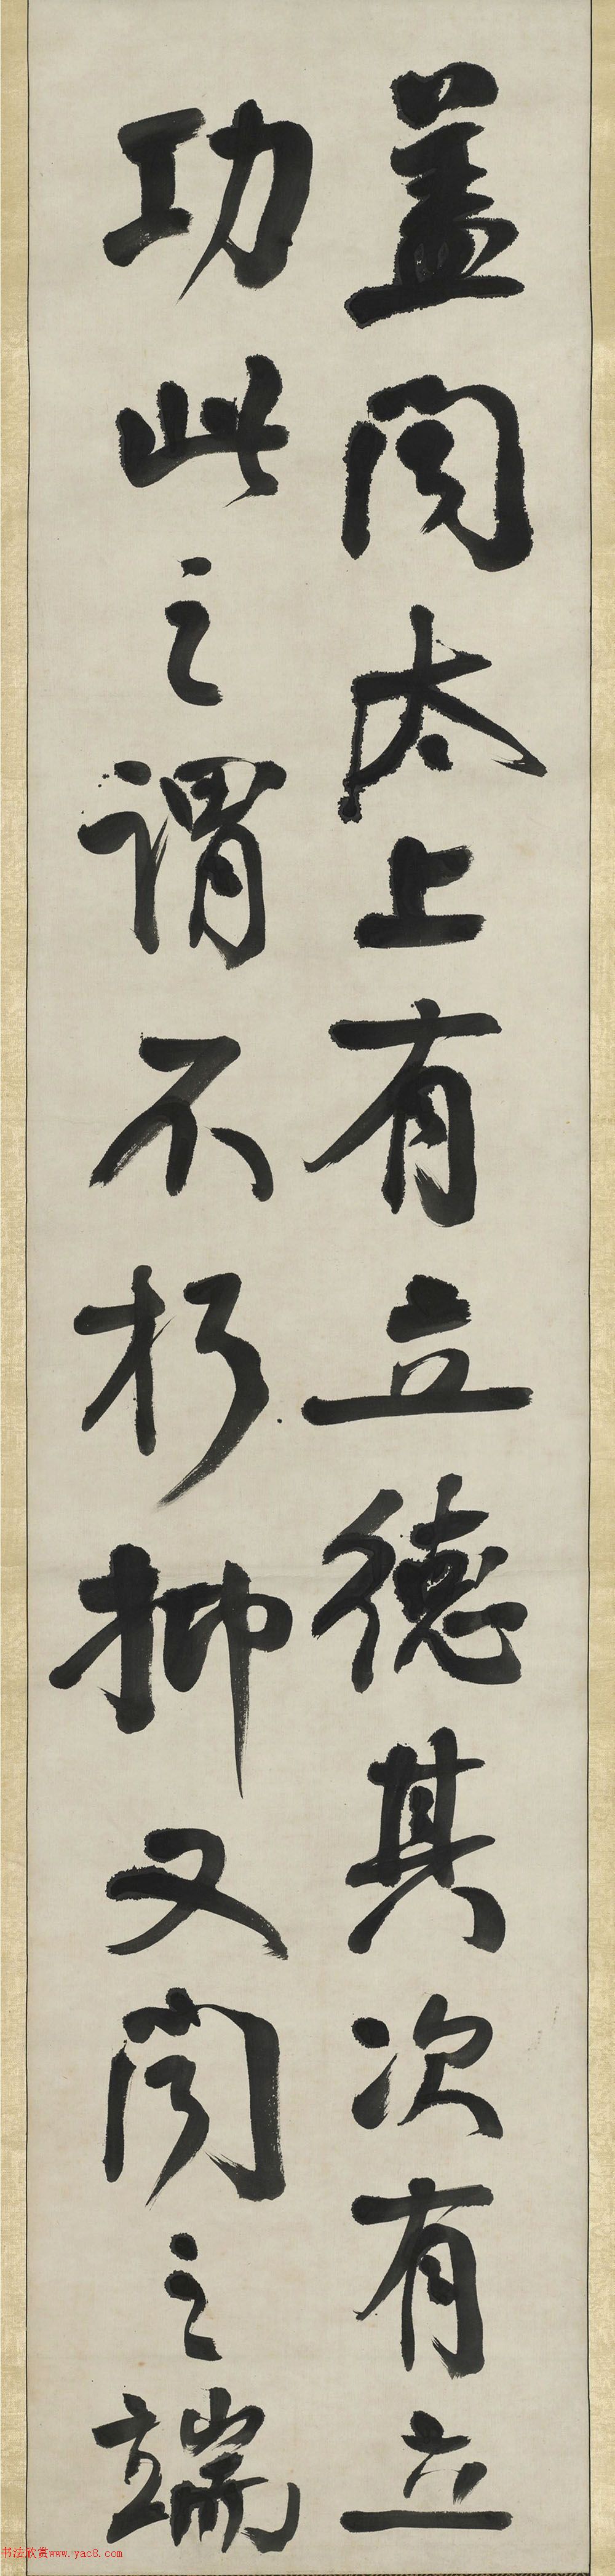 盖闻太上有立德其次有立
功此之谓不朽抑又闻之端
书法欣赏www.yac8.com